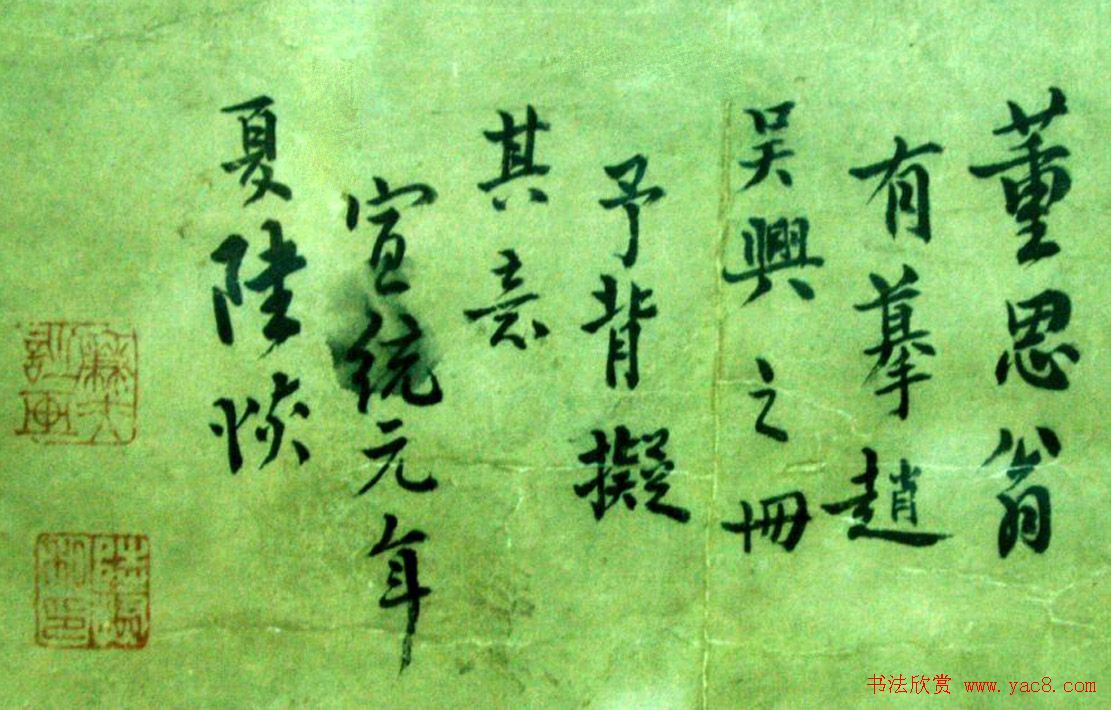 董思翁
有摹趙
吳興之冊
予背擬
其意
宣統元年
夏陸恢
书法欣赏 www.yac8.com